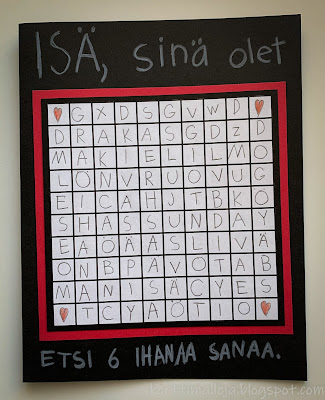 ISÄ, sinä olet
G X D S G V W D
D R A K A S G D Z D
M A K I E L I L M O
L O N V R U O V U G
E I C A H J T B K O
S H A S S U N D A Y
E A O Ä A S L I V Ä
O N B P A V O T A B
M A N I S Ä C Y E S
T C Y A Ö T I O
ETSI 6 IHANAA SANAA.